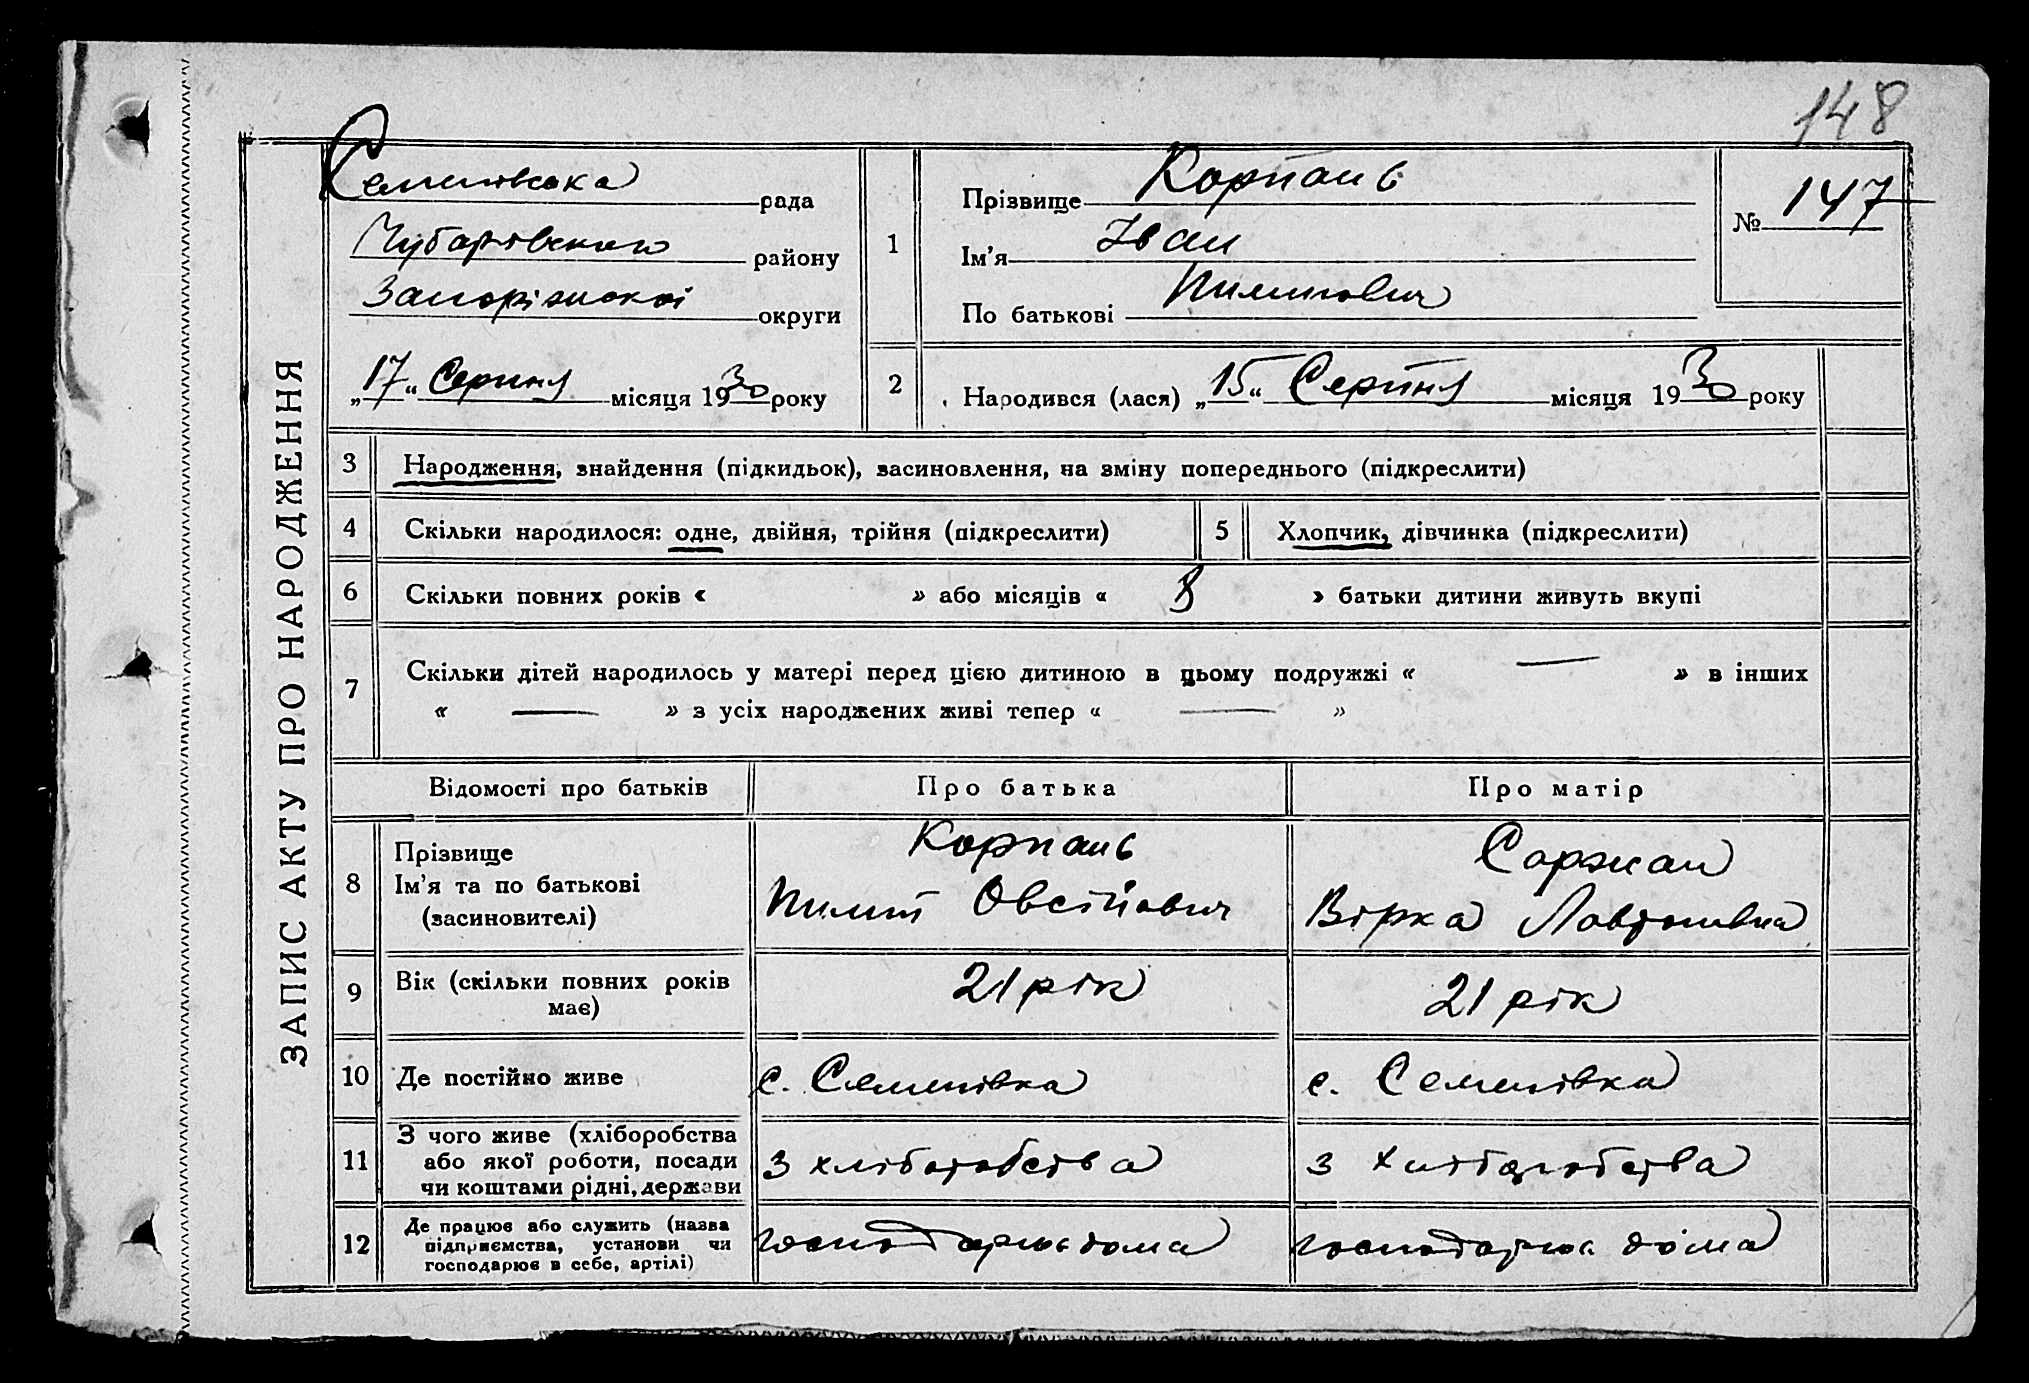 148
ЗАПИС АКТУ ПРО НАРОДЖЕННЯ
Семенівська рада
Чубарівського району
Запорізької округи
„17“ Серпня місяця 1930 року
1
Прізвище Корпань
Ім'я Іван
По батькові Пилипович
№ 147
2
Народився (лася) „15“ Серпня місяця 1930 року
3 Народження, знайдення (підкидьок), засиновлення, на зміну попереднього (підкреслити)
4 Скільки народилося: одне, двійня, трійня (підкреслити)
5 Хлопчик, дівчинка (підкреслити)
6 Скільки повних років « » або місяців « 8 » батьки дитини живуть вкупі
7 Скільки дітей народилось у матері перед цією дитиною в цьому подружжі « — » в інших
« — » з усіх народжених живі тепер « — »
Відомості про батьків Про батька Про матір
8
Прізвище
Ім'я та по батькові
(засиновителі)
Корпань
Пилип Овсійович
Саржан
Вірка
9
Вік (скільки повних років
має)
21 рік
21 рік
10 Де постійно живе
с. Семенівка
с. Семенівка
11
З чого живе (хліборобства
або якої роботи, посади
чи коштами рідні, держави
з хліборобства
з хліборобства
12
Де працює або служить (назва
підприємства, установи чи
господарює в себе, артілі)
господарює дома
господарює дома